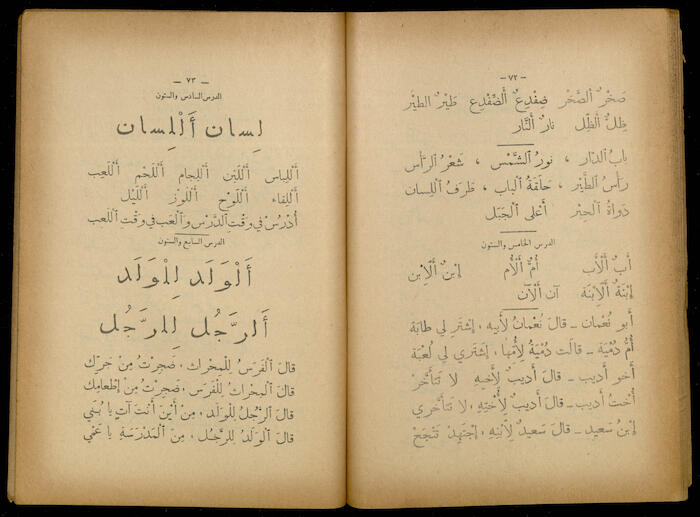 — ٧٢ —
صَخْرٌ اَلصَّخْر ضِفْدِعٌ اَلضِّفْدِع طَيْرٌ اَلطَّيْر
ظِلٌّ اَلظِّل نارٌ اَلنَّار
بابُ الدّار ، نورُ الشَّمْس ، شَعْرُ الرَّأس
رَأسُ الطَّيْر ، حَلَقَةُ الباب ، طَرَفُ اللِسان
دَواةُ الحِبْر أَعْلى الجَبَل
الدرس الخامس والستون
أَبٌ اَلْأَب أُمٌّ اَلْأُم إبْنٌ اَلْاِبن
إبْنَةٌ اَلْاِبْنَة آن اَلْآن
أَبو نُعْمان ـ قالَ نُعْمانُ لأَبيه ، إشْتَرِ لي طابَة
أُمُّ دُمْيَة ـ قالَت دُمْيَةُ لِأُمِّها ، إشتَري لي لُعْبَة
أَخو أَديب ـ قالَ أَديبٌ لِأَخيهِ لا تَتَأَخَّرْ
أُختُ أَديب ـ قالَ أَديبٌ لِأُخْتِهِ ، لا تَتَأَخَّري
إبنُ سَعيد ـ قالَ سَعيدٌ لِأبْنِهِ ، إجْتَهِدْ تَنْجَحْ
— ٧٣ —
الدرس السادس والستون
لِسان اَلْلِسان
اَلْلِباس اَلْلَبَن اَلْلِجام اَلْلَحْم اَلْلَعِب
اَلْلِقاء اَلْلَوْح اَلْلَوْز اَلْلَيْل
أُدْرُسْ في وَقْتِ الدَّرْس وَالْعَب في وَقْت اللَعِب
الدرس السابع والستون
اَلْوَلَد لِلْوَلَد
اَلرَّجُل لِلرَّجُل
قالَ الفَرَسُ لِلْمِحْراث ، ضَجِرْتُ مِنْ جَرِّكَ
قالَ المِحْراثُ لِلْفَرَس ، ضَجِرْتُ مِنْ إطْعامِكَ
قالَ الرَّجُلُ لِلْوَلَد ، مِنْ أَيْنَ أَنْتَ آتٍ يا بُنَيَّ
قالَ الوَلَدُ لِلرَّجُل ، مِنَ المَدْرَسَةِ يا عَمّي